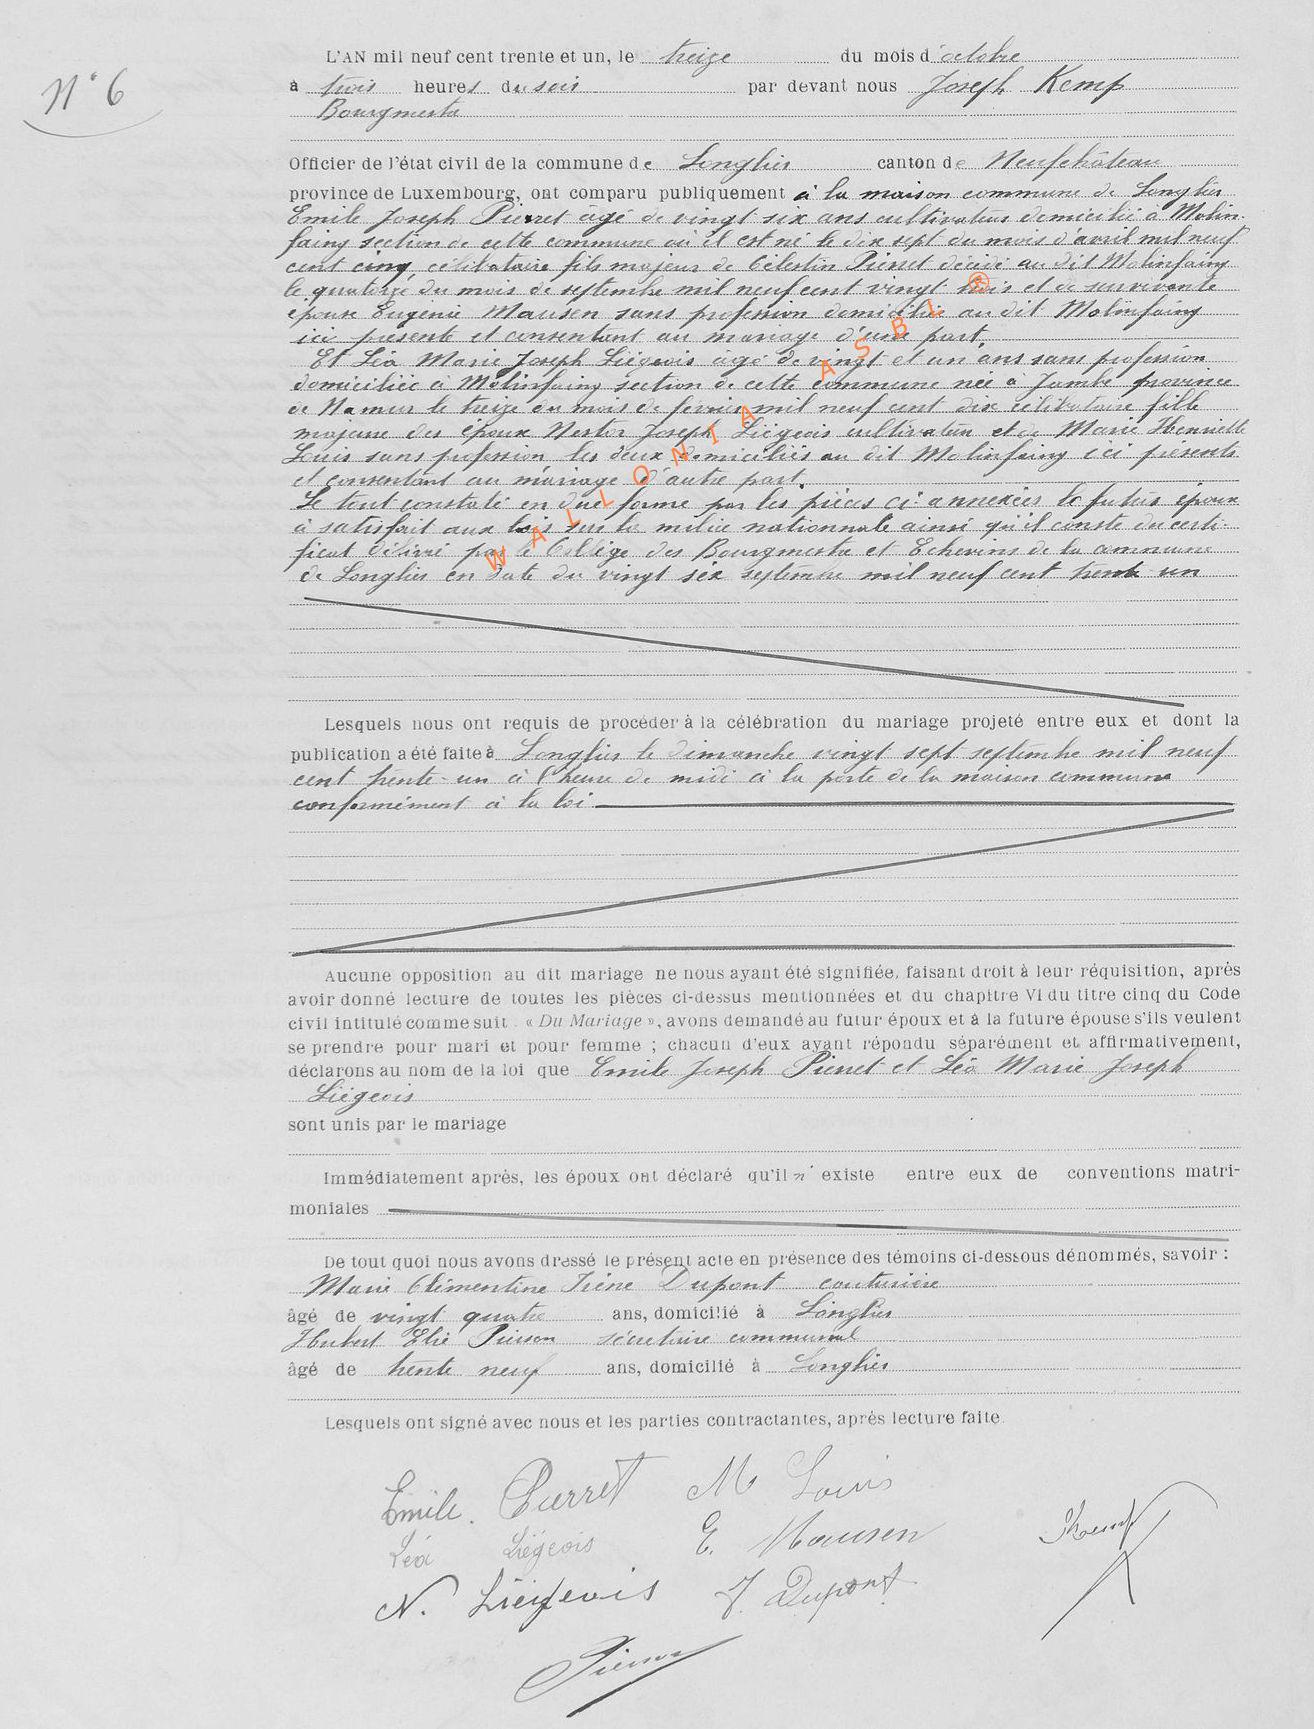 N° 6
L'AN mil neuf cent trente et un, le treize du mois d'octobre
à trois heures du soir par devant nous Joseph Kemp
Bourgmestre
Officier de l'état civil de la commune de Longlier canton de Neufchâteau
province de Luxembourg, ont comparu publiquement à la maison commune de Longlier
Emile Joseph Pierret âgé de vingt six ans cultivateur domicilié à Molin-
faing section de cette commune où il est né le dix sept du mois d'avril mil neuf
cent cinq, célibataire fils majeur de Célestin Pierret décédé au dit Molinfaing
le quatorze du mois de septembre mil neuf cent vingt trois et de survivante
épouse Eugénie Mausen sans profession domiciliée au dit Molinfaing
ici présente et consentant au mariage d'une part.
Et Léa Marie Joseph Liégeois âgé de vingt et un ans sans profession
domiciliée à Molinfaing section de cette commune née à Jambe province
de Namur le treize du mois de février mil neuf cent dix célibataire fille
majeure des époux Nestor Joseph Liégeois cultivateur et de Marie Henriette
Louis sans profession les deux domiciliés au dit Molinfaing ici présents
et consentant au mariage d'autre part.
Le tout constaté en due forme par les pièces ci annexées le futur époux
à satisfait aux lois sur la milice nationnale ainsi qu'il conste du certi-
ficat délivré par le Collège des Bourgmestre et Echevins de la commune
de Longlier en date du vingt six septembre mil neuf cent trente un
WALLONIA ASBL ®
Lesquels nous ont requis de procéder à la célébration du mariage projeté entre eux et dont la
publication a été faite à Longlier le dimanche vingt sept septembre mil neuf
cent trente-un à l'heure de midi à la porte de la maison commune
conformément à la loi
Aucune opposition au dit mariage ne nous ayant été signifiée, faisant droit à leur réquisition, après
avoir donné lecture de toutes les pièces ci-dessus mentionnées et du chapitre VI du titre cinq du Code
civil intitulé comme suit : « Du Mariage », avons demandé au futur époux et à la future épouse s'ils veulent
se prendre pour mari et pour femme ; chacun d'eux ayant répondu séparément et affirmativement,
déclarons au nom de la loi que Emile Joseph Pierret et Léa Marie Joseph
Liégeois
sont unis par le mariage
Immédiatement après, les époux ont déclaré qu'il n'existe entre eux de conventions matri-
moniales
De tout quoi nous avons dressé le présent acte en présence des témoins ci-dessous dénommés, savoir :
Marie Clémentine Irène Dupont couturière
âgé de vingt quatre ans, domicilié à Longlier
Hubert Elie Pierson sécrétaire communal
âgé de trente neuf ans, domicilié à Longlier
Lesquels ont signé avec nous et les parties contractantes, après lecture faite.
Emile. Pierret M Louis
Léa Liégeois E. Mausen
JKemp
N. Liégeois I. Dupont
Pierson